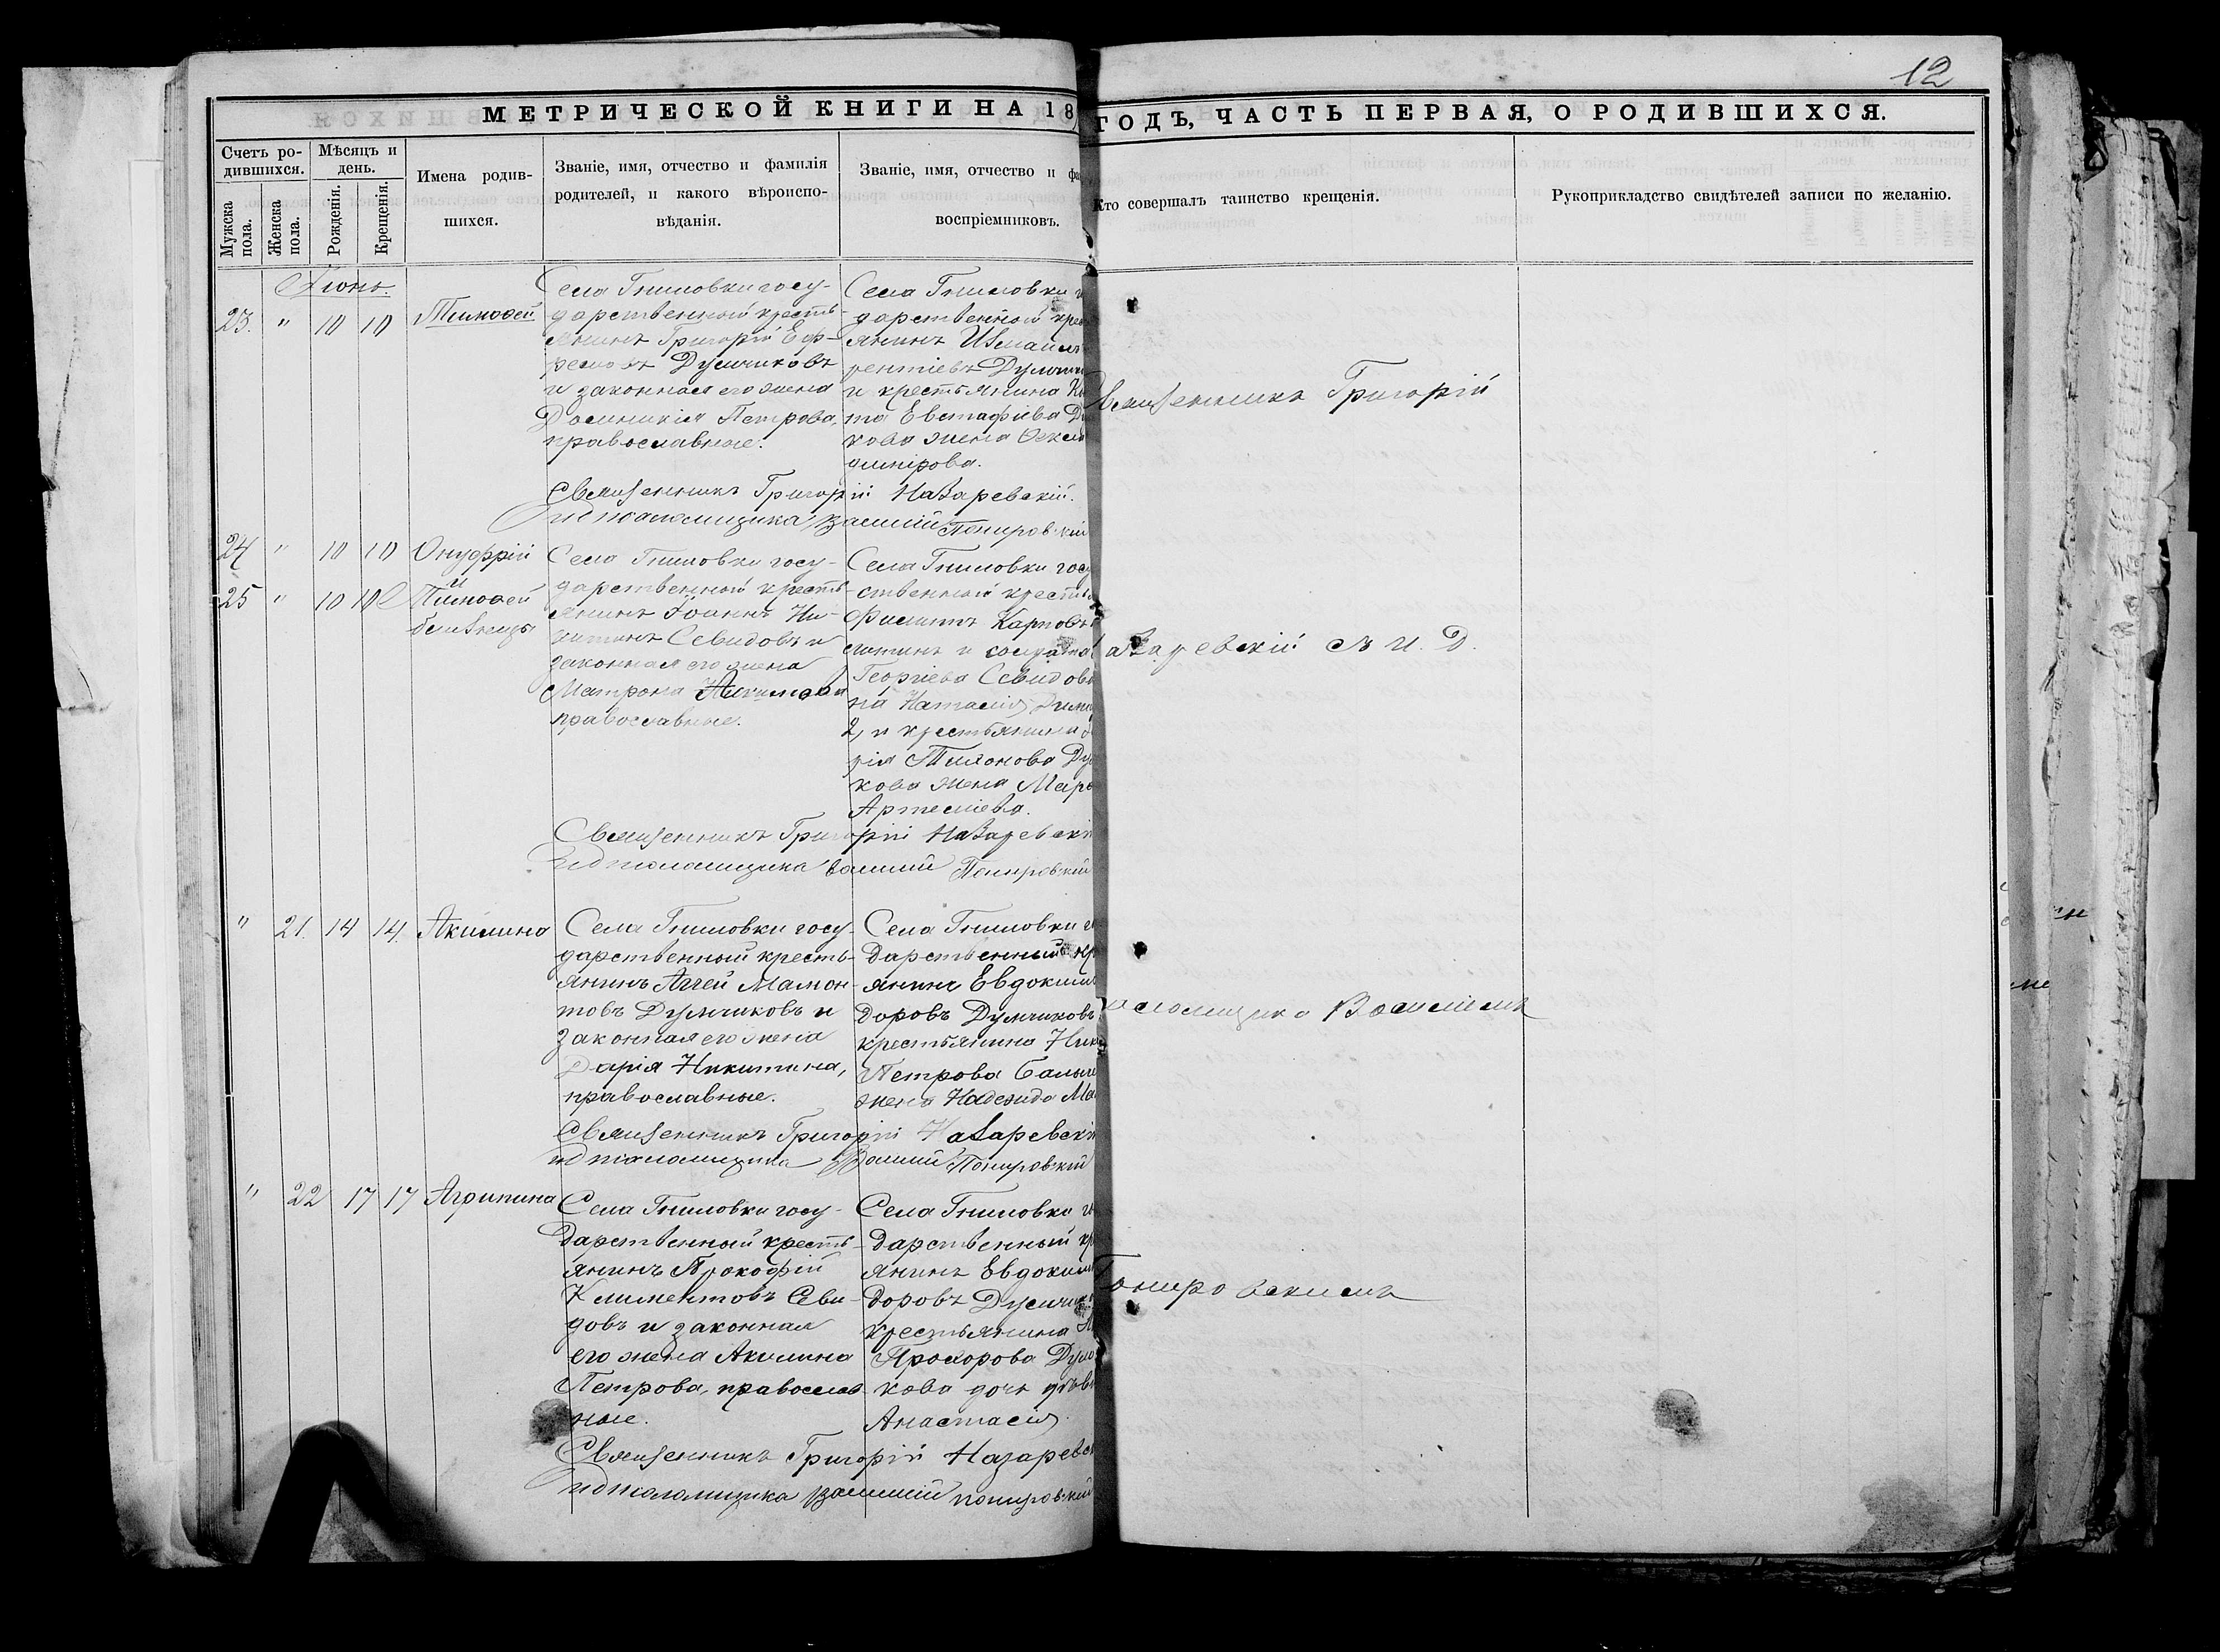 12
МЕТРИЧЕСКОЙ КНИГИ НА 18
ГОДЪ, ЧАСТЬ ПЕРВАЯ, О РОДИВШИХСЯ.
Счетъ ро-
дившихся.
Мѣсяцъ и
день.
Мужска
пола.
Женска
пола.
Рожденія.
Крещенія.
Имена родив-
шихся.
Званіе, имя, отчество и фамилія
родителей, и какого вѣроиспо-
вѣданія.
Званіе, имя, отчество и фа
воспріемниковъ.
Кто совершалъ таинство крещенія.
Рукоприкладство свидѣтелей записи по желанію.
Іюнь.
23. " 10 10 Тимоѳей
Села Гниловки госу-
дарственный кресть-
янинъ Григорій Еф-
ремовъ Думчиковъ
и законная его жена
Домникія Петрова,
православные.
Села Гниловки г
дарственный крес
янинъ Измаилъ
рентіевъ Думчи
и крестьянина
та Евстафіева Д
кова жена Ѳекла
димірова.
Священникъ Григорій Назаревскій.
И д псаломщика Василій Понировскій
24 " 10 10 Онуфрій
и
25 " 10 10 Тимоѳей
близнецы
Села Гниловки госу-
дарственный кресть-
янинъ Іоаннъ Ни-
китинъ Севидовъ и
законная его жена
Матрона Акимова
православные.
Села Гниловки госу
ственный крестья
Филиппъ Карповъ
и солдата
Георгіева Севидов
на Наталія
2, и крестьянина
рія Тихонова Ду
кова жена Мар
Артеміева.
Священникъ Григорій Назаревскій
И д псаломщика Василій Понировскій
" 21. 14 14. Акилина
Села Гниловки госу-
дарственный кресть-
янинъ Аггей Мамон-
товъ Думчиковъ и
законная его жена
Дарія Никитина,
православные.
Села Гниловки го
дарственный кр
янинъ Евдокимъ
доровъ Думчиковъ
крестьянина Ник
Петрова
жена Надежда Ма
Священникъ Григорій Назаревскій
И д псаломщика Василій Понировскій
" 22 17 17 Агрипина
Села Гниловки госу-
дарственный кресть-
янинъ Прокофій
Климентовъ Севи-
довъ и законная
его жена Акилина
Петрова, православ
ные.
Села Гниловки го
дарственный кр
янинъ Евдокимъ
доровъ Думчик
крестьянина
Прохорова Думч
кова дочь дѣви
Анастасія.
Священникъ Григорій Назаревск
И д псаломщика Василій Понировскій
Священникъ Григорій
азаревскій съ И. Д.
псаломщика Василіемъ
Понировскимъ